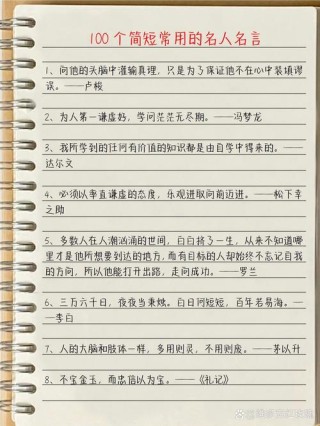 100个简短常用的名人名言
1、向他的头脑中灌输真理，只是为了保证他不在心中装填谬
误。——卢梭
2、为人第一谦虚好，学问茫茫无尽期。——冯梦龙
3、我所学到的任何有价值的知识都是由自学中得来的。——
达尔文
4、必须以率直谦虚的态度，乐观进取向前迈进。——松下幸
之助
5、多数人在人潮汹涌的世间，白白挤了一生，从来不知道哪
里才是他所想要到达的地方，而有目标的人却始终不忘记自我
的方向，所以他能打开出路，走向成功。——罗兰
6、三万六千日，夜夜当秉烛。白日何短短，百年苦易满。—
—李白
7、人的大脑和肢体一样，多用则灵，不用则废。——茅以升
8、不宝金玉，而忠信以为宝。——《礼记》